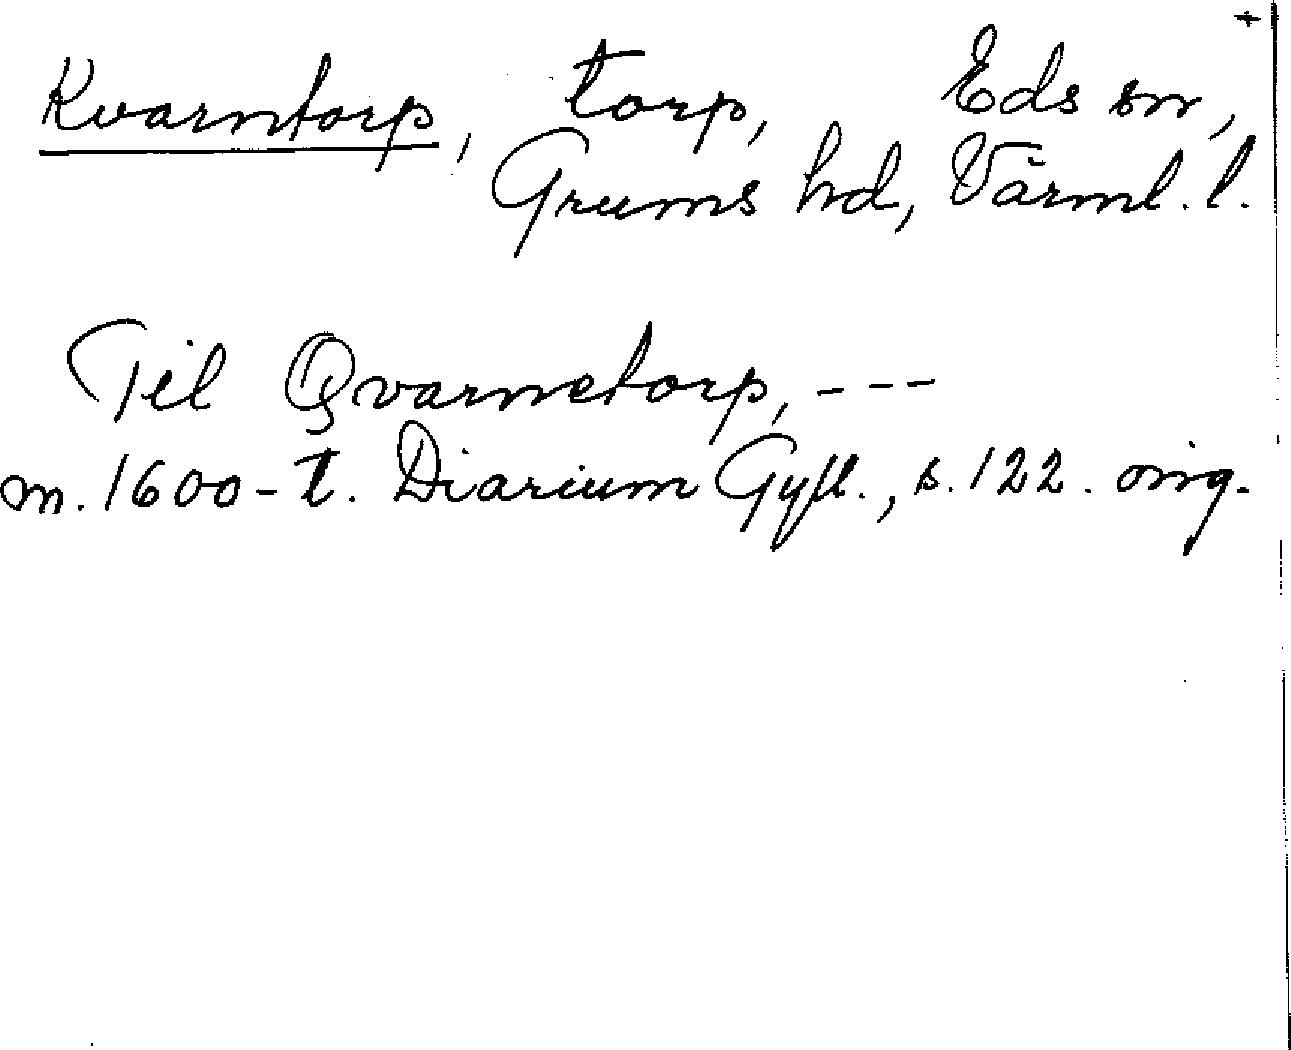 +
Kvarntorp, torp, Eds sn,
Grums hd, Värml. l.
Til Qvarnetorp, ---
m. 1600-t. Diarium Gyll., s. 122. orig.